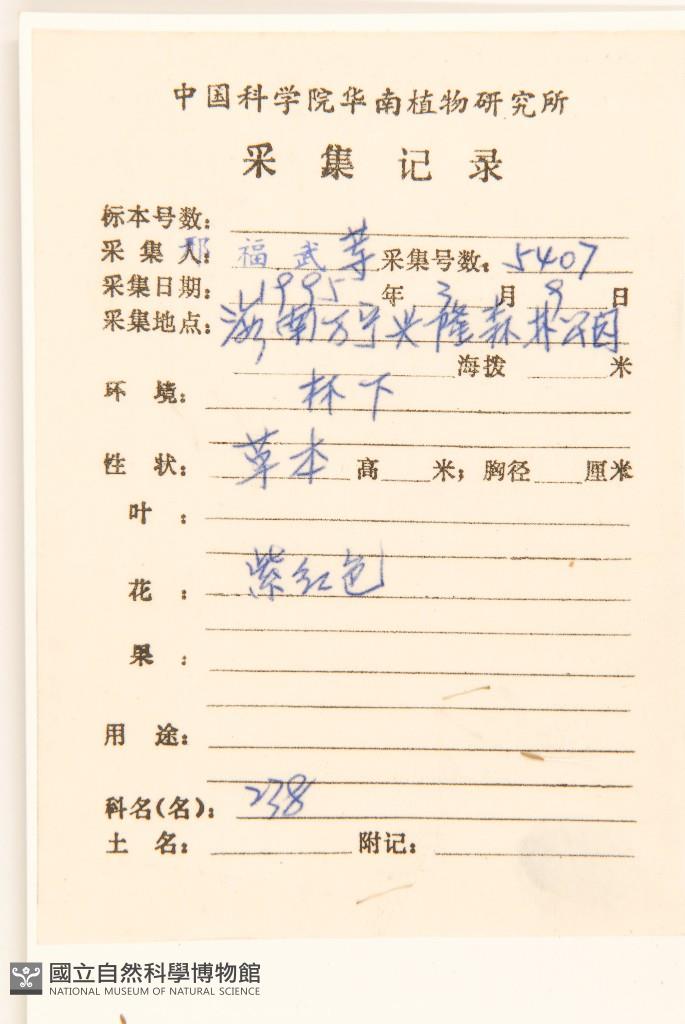 中国科学院华南植物研究所
采集记录
标本号数：
采集人：邢福武等 采集号数：5407
采集日期：1995年3月9日
采集地点：海南万宁兴隆森林公园
海拨 米
环境：林下
性状：草本 高 米；胸径 厘米
叶：
花：紫红色
果：
用途：
科名(名)：238
土名： 附记：
國立自然科學博物館
NATIONAL MUSEUM OF NATURAL SCIENCE